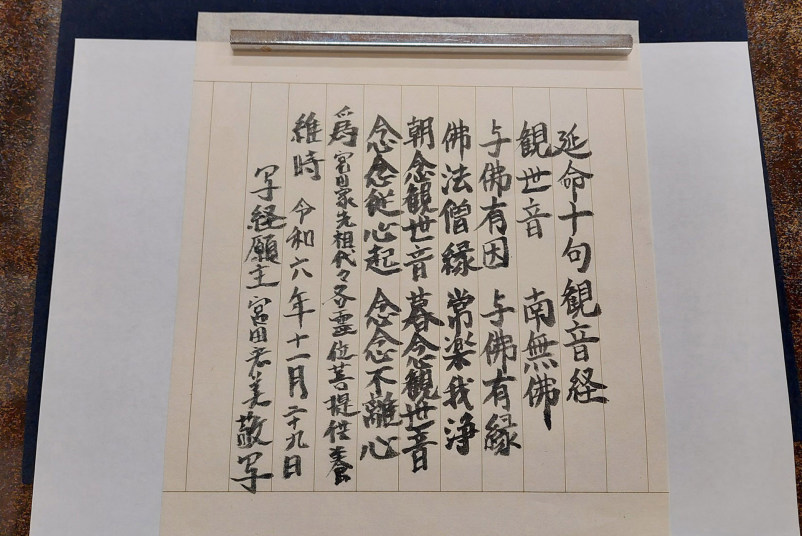 延命十句観音経
観世音 南無佛
与佛有因 与佛有縁
佛法僧縁 常楽我浄
朝念観世音 暮念観世音
念念従心起 念念不離心
為宮田家先祖代々各霊位菩提供養
維時 令和六年十一月二十九日
写経願主 宮田 美 敬写